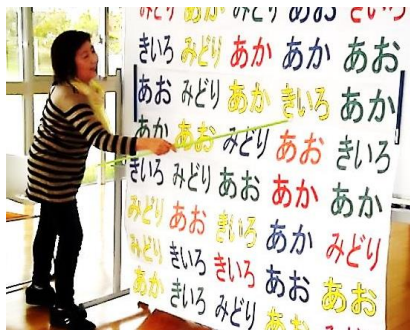 みどり あか みどり あお きいろ
きいろ みどり あか あか あお
あお みどり あか きいろ あか
あか あお みどり あお きいろ
きいろ みどり あお あか あか
みどり あお きいろ あか みどり
みどり きいろ きいろ あか あお
あか きいろ みどり あお あお